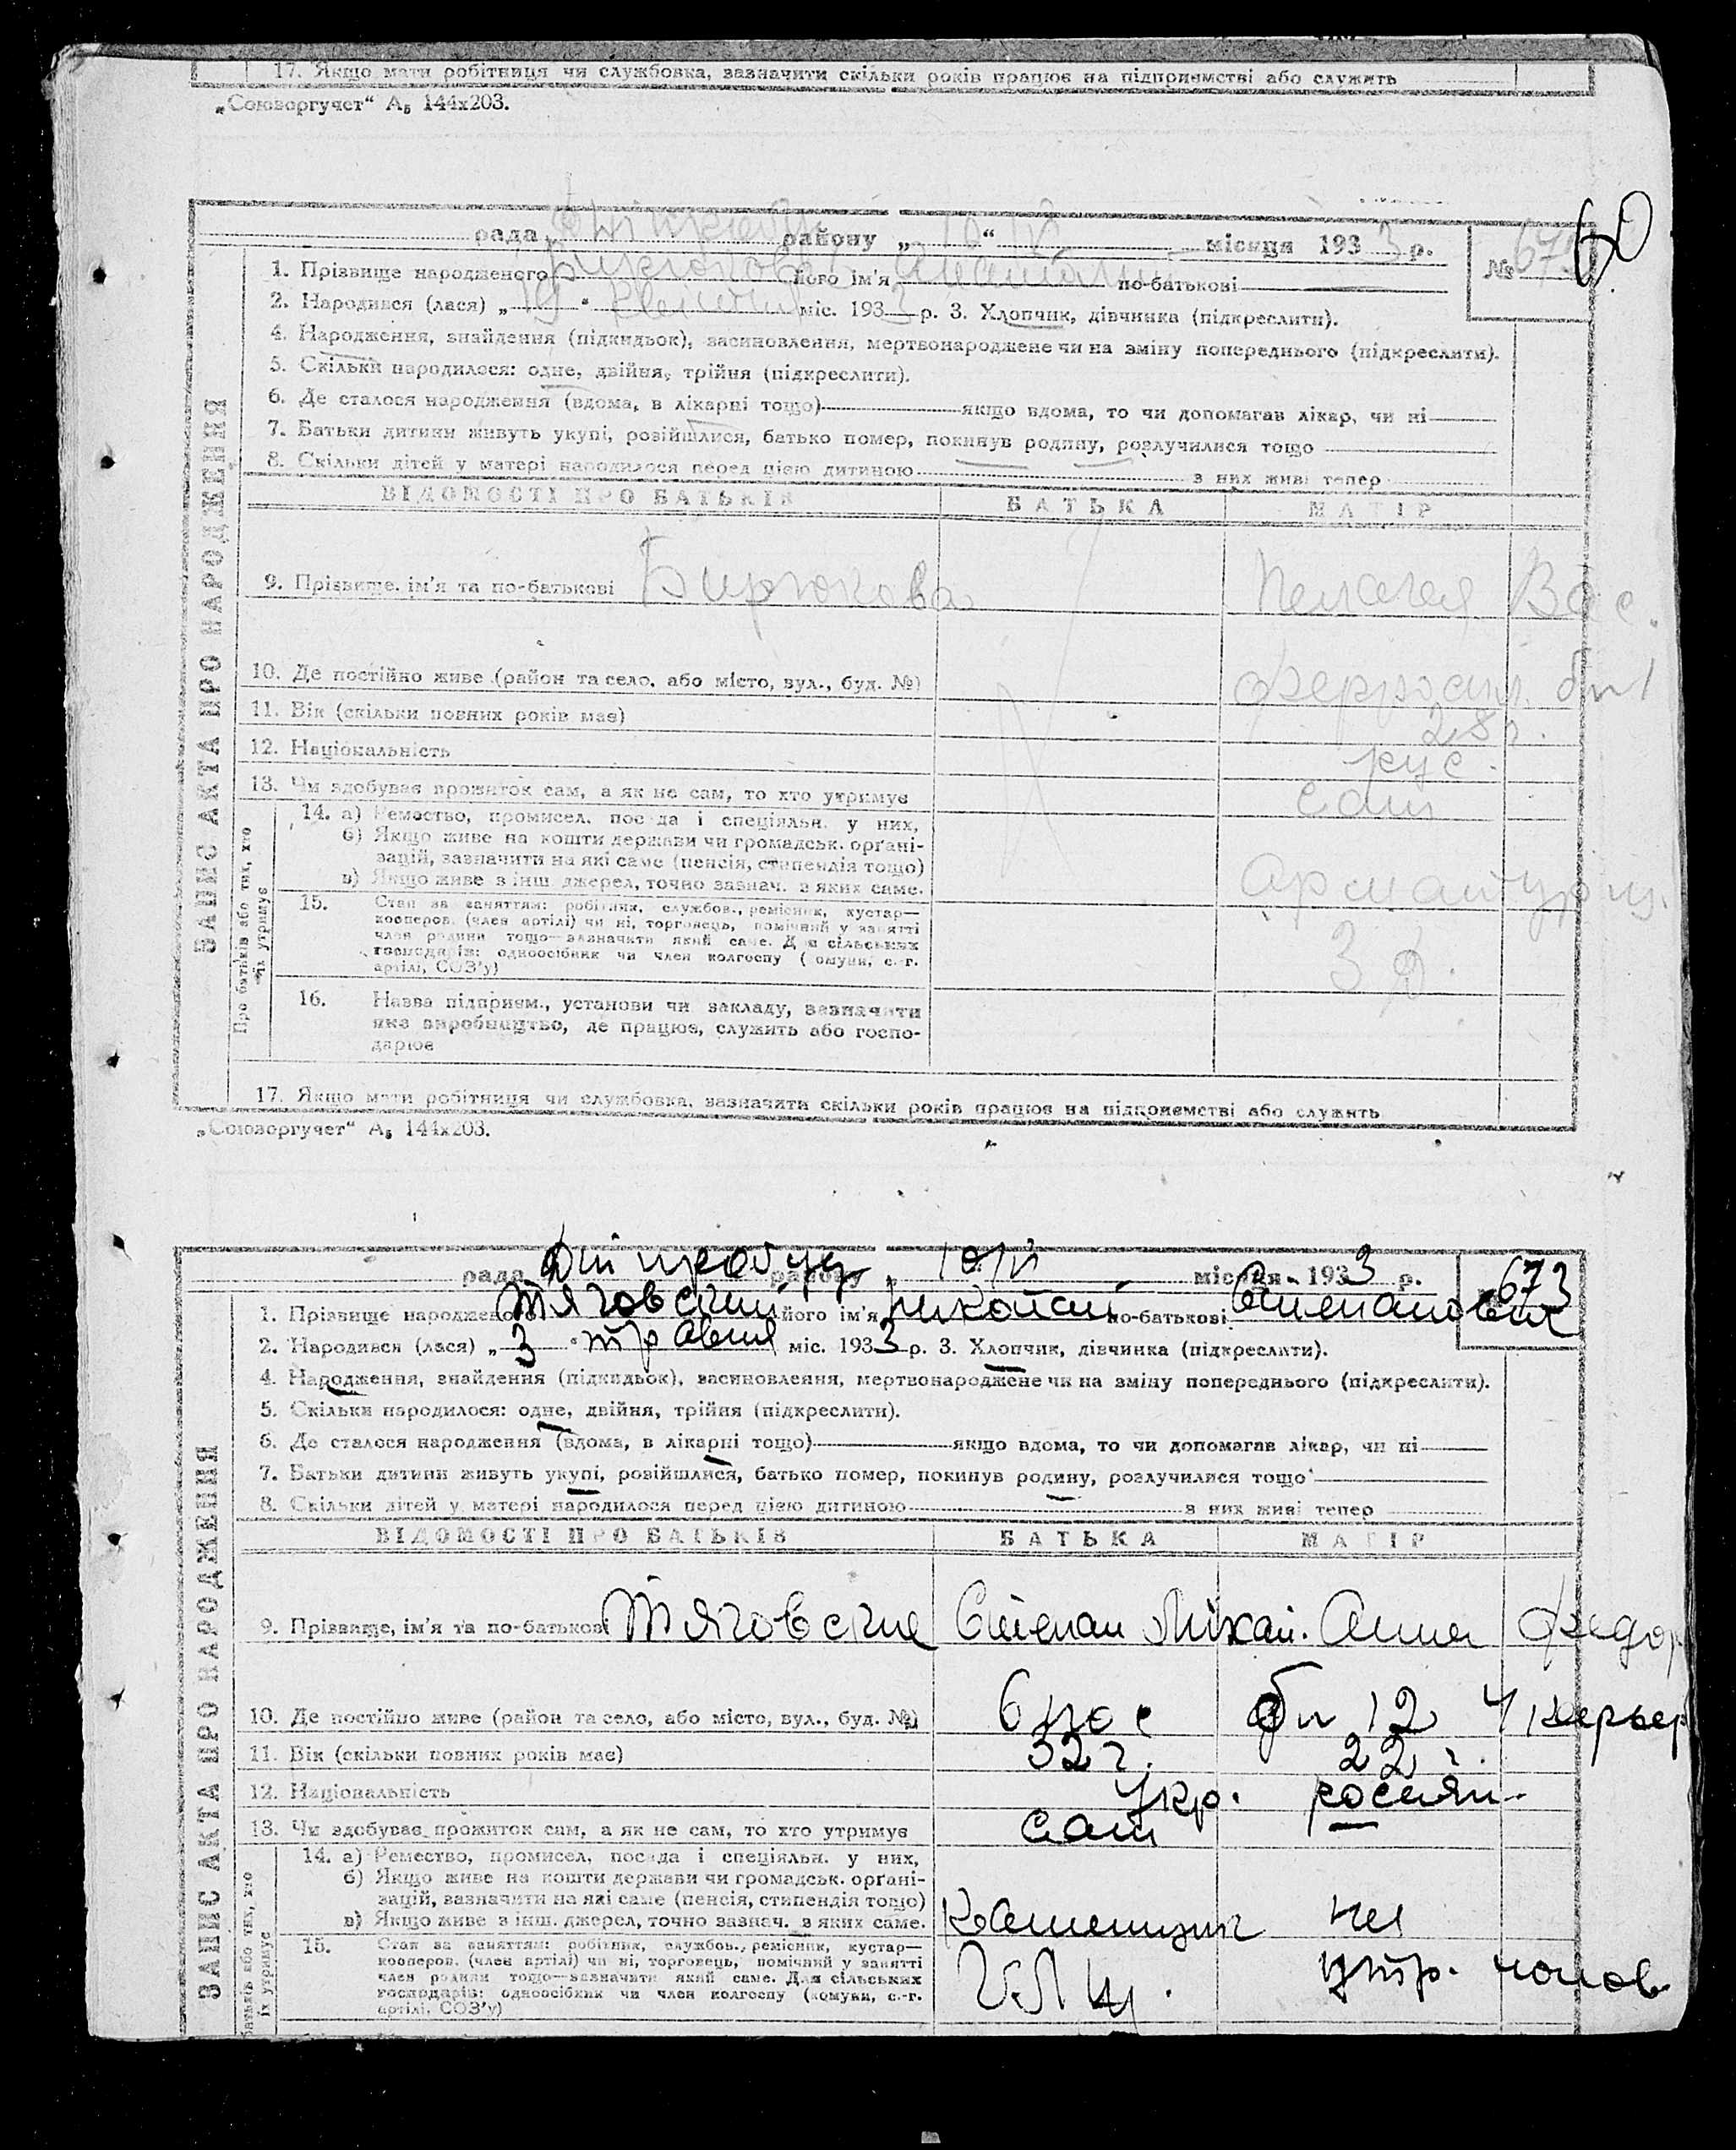 17. Якщо мати робітниця чи службовка, зазначити скільки років працює на підприємстві або служить
„Союзоргучет“ А₅ 144х203.
60
рада району „ 10 “ IV місяця 1933 р.
№ 67
1. Прізвище народженого Бирюков його ім'я по-батькові
2. Народився (лася) „ 19 “ міс. 193 р. 3. Хлопчик, дівчинка (підкреслити).
4. Народження, знайдення (підкидьок), засиновлення, мертвонароджене чи на зміну попереднього (підкреслити).
5. Скільки народилося: одне, двійня, трійня (підкреслити).
6. Де сталося народження (вдома, в лікарні тощо) якщо вдома, то чи допомагав лікар, чи ні
7. Батьки дитини живуть укупі, розійшлися, батько помер, покинув родину, розлучилися тощо
8. Скільки дітей у матері народилося перед цією дитиною з них живі тепер
ЗАПИС АКТА ПРО НАРОДЖЕННЯ
ВІДОМОСТІ ПРО БАТЬКІВ БАТЬКА МАТІР
9. Прізвище, ім'я та по-батькові Бирюкова Пелагея Вас.
10. Де постійно живе (район та село, або місто, вул., буд. №) ферросил. бл 1
11. Вік (скільки повних років має) 28 г.
12. Національність рус.
13. Чи здобуває прожиток сам, а як не сам, то хто утримує сам
Про батьків або тих, хто їх утримує
14. а) Ремество, промисел, посада і спеціяльн. у них,
б) Якщо живе на кошти держави чи громадськ. органі-
зацій, зазначити на які саме (пенсія, стипендія тощо)
в) Якщо живе з інш. джерел, точно зазнач. з яких саме.
арматурщ.
15. Стан за заняттям: робітник, службов., ремісник, кустар—
кооперов. (член артілі) чи ні, торговець, помічний у занятті
член родини тощо—зазначити який саме. Для сільських
господарів: одноосібник чи член колгоспу (комуни, с.-г.
артілі, СОЗ'у)
16. Назва підприєм., установи чи закладу, зазначити
яке виробництво, де працює, служить або госпо-
дарює
17. Якщо мати робітниця чи службовка, зазначити скільки років працює на підприємстві або служить
„Союзоргучет“ А₅ 144х203.
рада району „ 10/IV місяця 1933 р.
673
1. Прізвище народженого Тяговський його ім'я Николай по-батькові Степанович
2. Народився (лася) „ 3 “ травня міс. 1933 р. 3. Хлопчик, дівчинка (підкреслити).
4. Народження, знайдення (підкидьок), засиновлення, мертвонароджене чи на зміну попереднього (підкреслити).
5. Скільки народилося: одне, двійня, трійня (підкреслити).
6. Де сталося народження (вдома, в лікарні тощо) якщо вдома, то чи допомагав лікар, чи ні
7. Батьки дитини живуть укупі, розійшлися, батько помер, покинув родину, розлучилися тощо
8. Скільки дітей у матері народилося перед цією дитиною з них живі тепер
ЗАПИС АКТА ПРО НАРОДЖЕННЯ
ВІДОМОСТІ ПРО БАТЬКІВ БАТЬКА МАТІР
9. Прізвище, ім'я та по-батькові Тяговські Степан Міхай. Анна Федор
10. Де постійно живе (район та село, або місто, вул., буд. №) 6 пос бл 12
11. Вік (скільки повних років має) 32 г. 22 г.
12. Національність Укр. росіян.
13. Чи здобуває прожиток сам, а як не сам, то хто утримує сам
батьків або тих, хто їх утримує
14. а) Ремество, промисел, посада і спеціяльн. у них,
б) Якщо живе на кошти держави чи громадськ. органі-
зацій, зазначити на які саме (пенсія, стипендія тощо)
в) Якщо живе з інш. джерел, точно зазнач. з яких саме.
Каменщик на
утр. чолов.
15. Стан за заняттям: робітник, службов., ремісник, кустар—
кооперов. (член артілі) чи ні, торговець, помічний у занятті
член родини тощо—зазначити який саме. Для сільських
господарів: одноосібник чи член колгоспу (комуни, с.-г.
артілі, СОЗ'у)